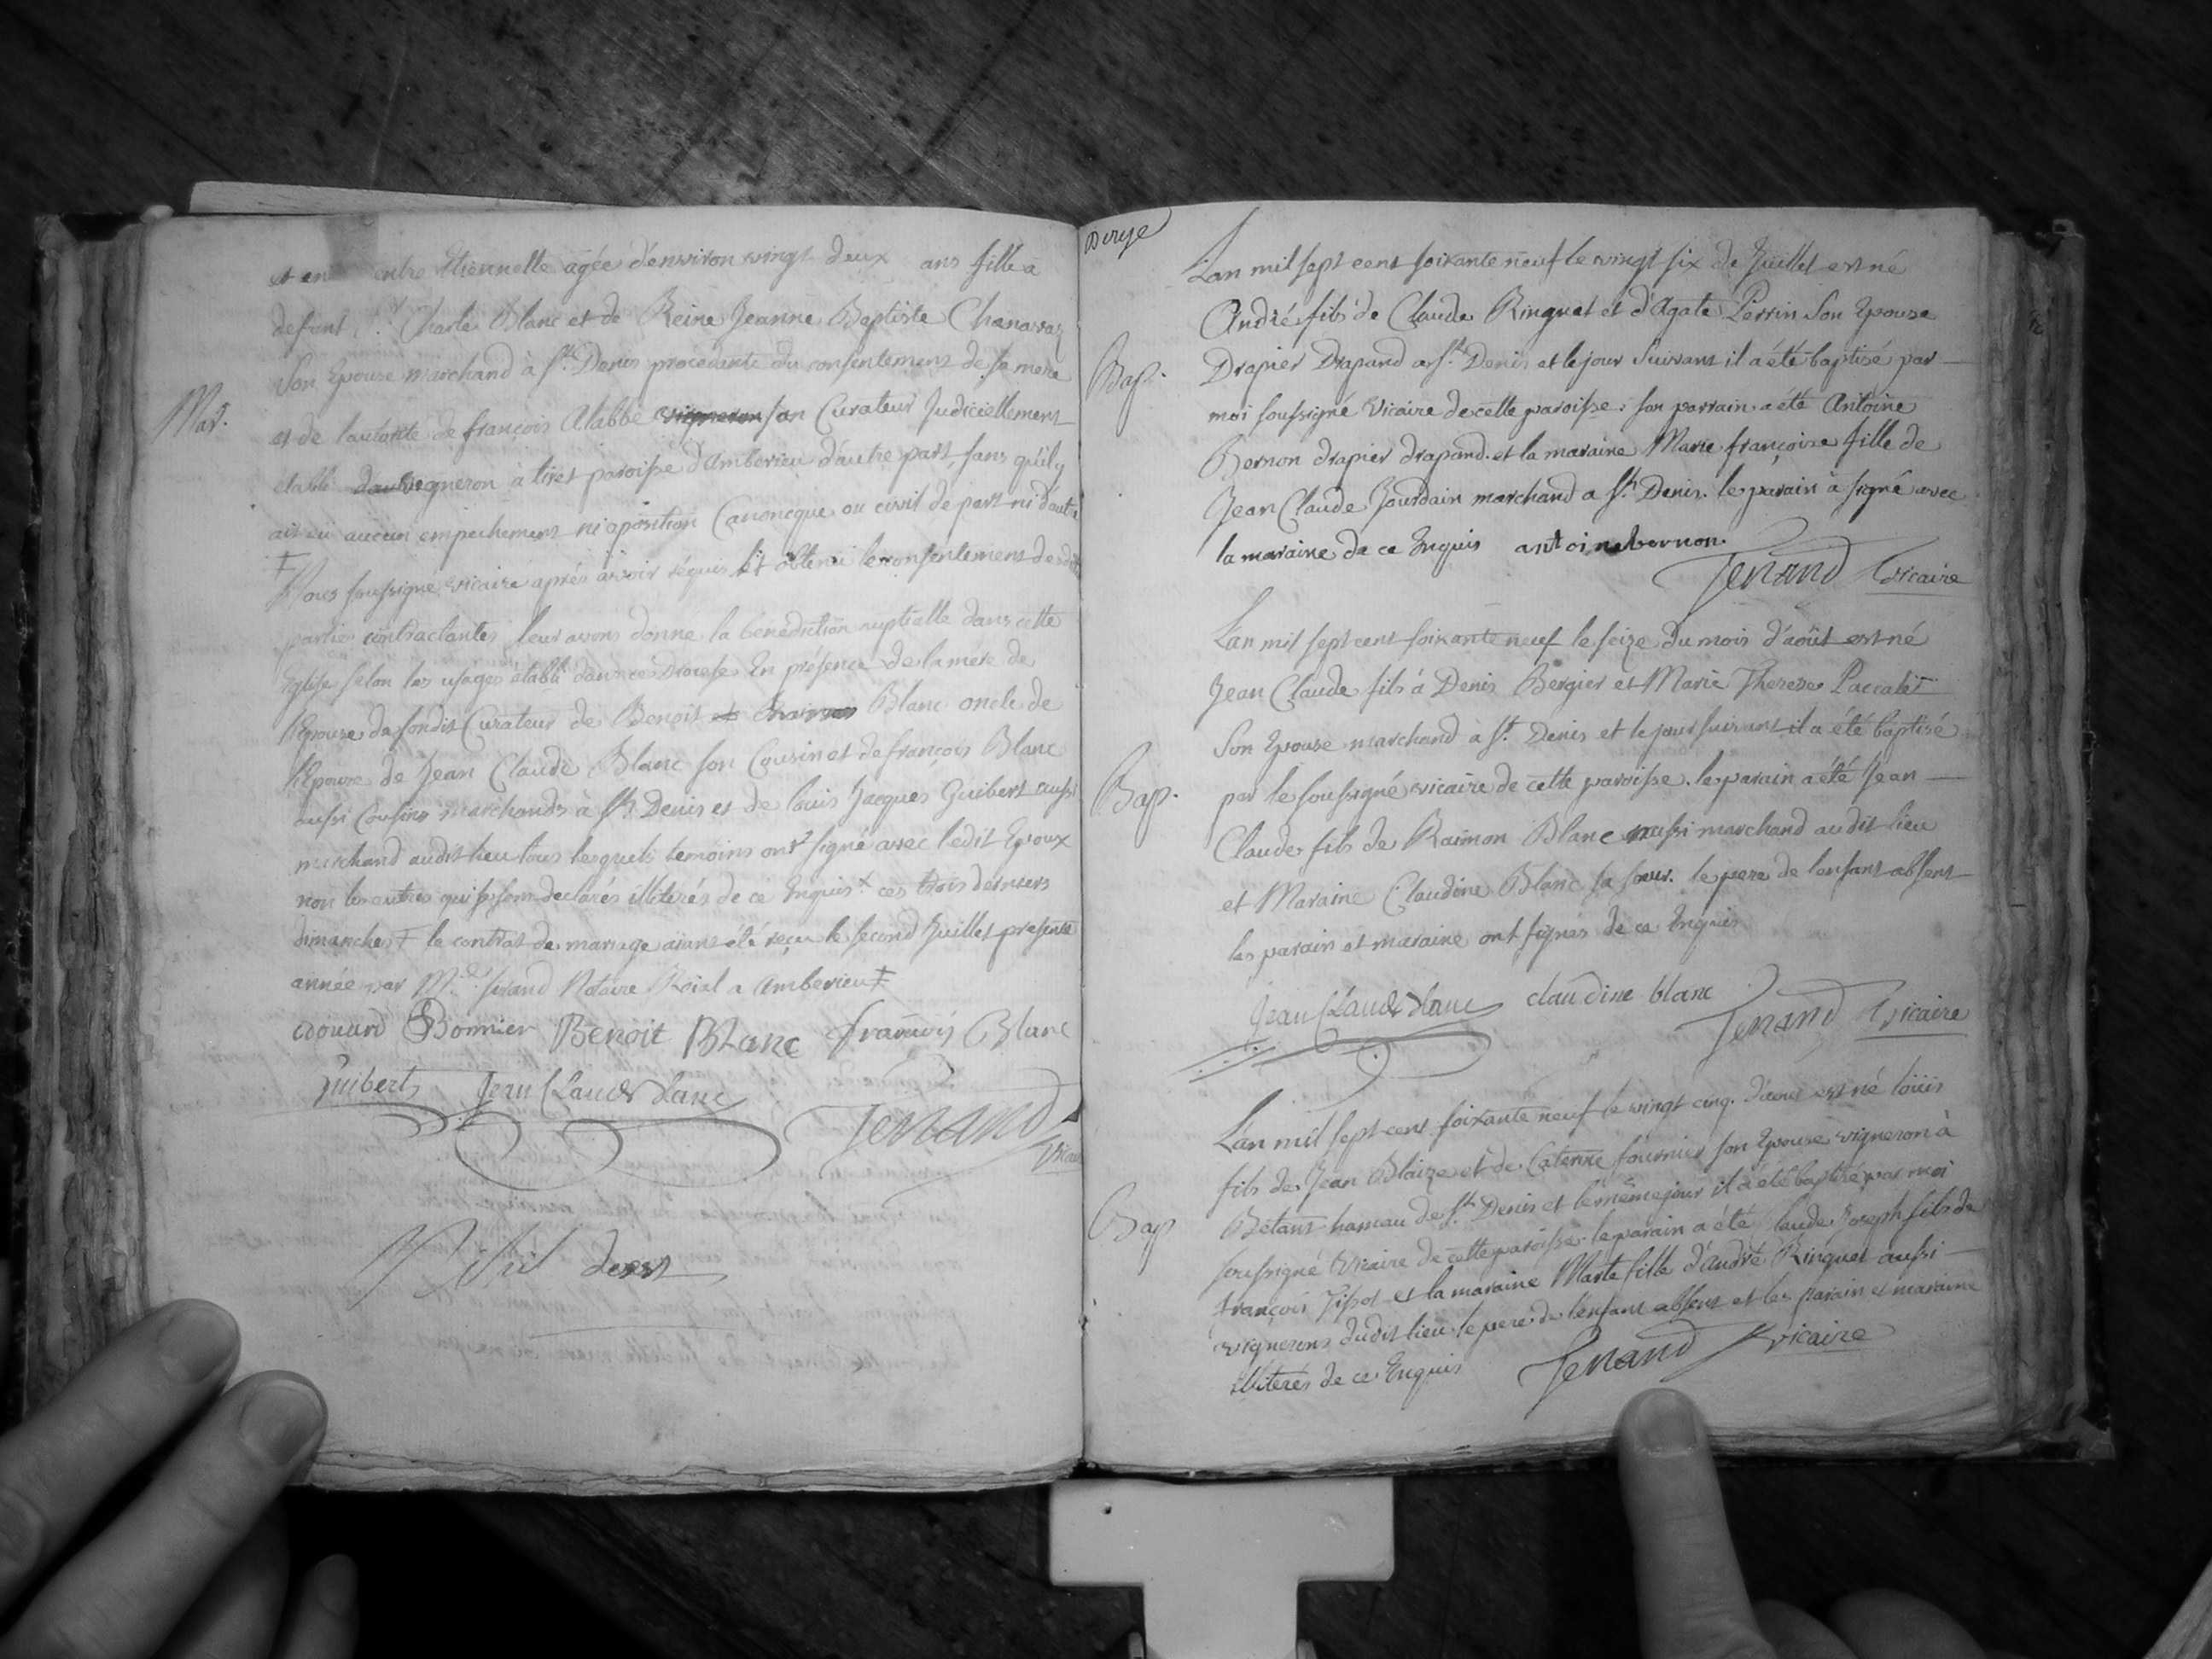 et en entre Etiennette agée d'environ vingt deux ans fille a
defunt Sr. Charle Blanc et de Reine Jeanne Baptiste Chanavaz
Son Epouse marchand à St. Denis procedante du consentement de sa mere
Mar.
et de l'autorité de françois Alabbe vigneron son Curateur Judiciellement
établi vigneron à tiret paroisse d'Amberieu d'autre part, sans qu'il y
ait eu aucun empechement ni oposition Canoncque ou civil de part ni d'autre
‡ Nous soussigné vicaire aprés avoir réquis et obtenu le consentement desdittes
parties contractantes leur avons donné la bénédiction nuptialle dans cette
Eglise selon les usages établi dans ce Diocese En présence de la mere de
l'Epouse de sondit Curateur de Benoit Blanc oncle de
l'Epouse de Jean Claude Blanc son Cousin et de françois Blanc
aussi Cousins marchands à St. Denis et de louis Jacques Guibert aussi
marchand audit lieu tous lesquels temoins ont signé avec ledit Epoux
non les autres qui se sont declarés illiterés de ce Enquis ‡ ces trois derniers
dimanches ‡ le contrat de mariage aiant été reçu le second Juillet presente
année par Me. Notaire Roial a Amberieu ‡
edouard Bonnier Benoit Blanc françois Blanc
Guibert Jean Claude blanc
Tenand vicaire
Nihil deest
Bap.
L'an mil sept cent soixante neuf le vingt six de Juillet est né
André fils de Claude Ringuet et d'Agate Perrin Son Epouse
Drapier Drapand a St. Denis et le jour Suivant il a été baptisé par
moi soussigné Vicaire de cette paroisse : son parrain a été Antoine
Bernon drapier drapand. et la maraine Marie françoise fille de
Jean Claude Jourdain marchand a St. Denis. le parain a signé avec
la maraine de ce Enquis antoine bernon.
Tenand vicaire
L'an mil sept cent soixante neuf le seize du mois d'août est né
Jean Claude fils à Denis Bergier et Marie Therese Paccalet
Son Epouse marchand a St. Denis et le jour suivant il a été baptisé
Bap.
par le soussigné vicaire de cette paroisse. le parain a été Jean
Claude fils de Raimon Blanc aussi marchand audit lieu
et Maraine Claudine Blanc sa sœur. le pere de l'enfant absent
les parain et maraine ont signés de ce Enquis
Jean Claude blanc claudine blanc
Tenand vicaire
L'an mil sept cent soixante neuf le vingt cinq. d'aout est né loüis
fils de Jean Blaize et de Caterine fournier son Epouse vigneron à
Bap
Bétant hameau de St. Denis et le même jour il a été baptisé par moi
soussigné Vicaire de cette paroisse. le parain a été Claude Joseph fils de
françois et la maraine Marte fille d'André Ringuet aussi
vignerons dudit lieu le pere de l'enfant absent et les parain et maraine
illiterés de ce Enquis
Tenand vicaire